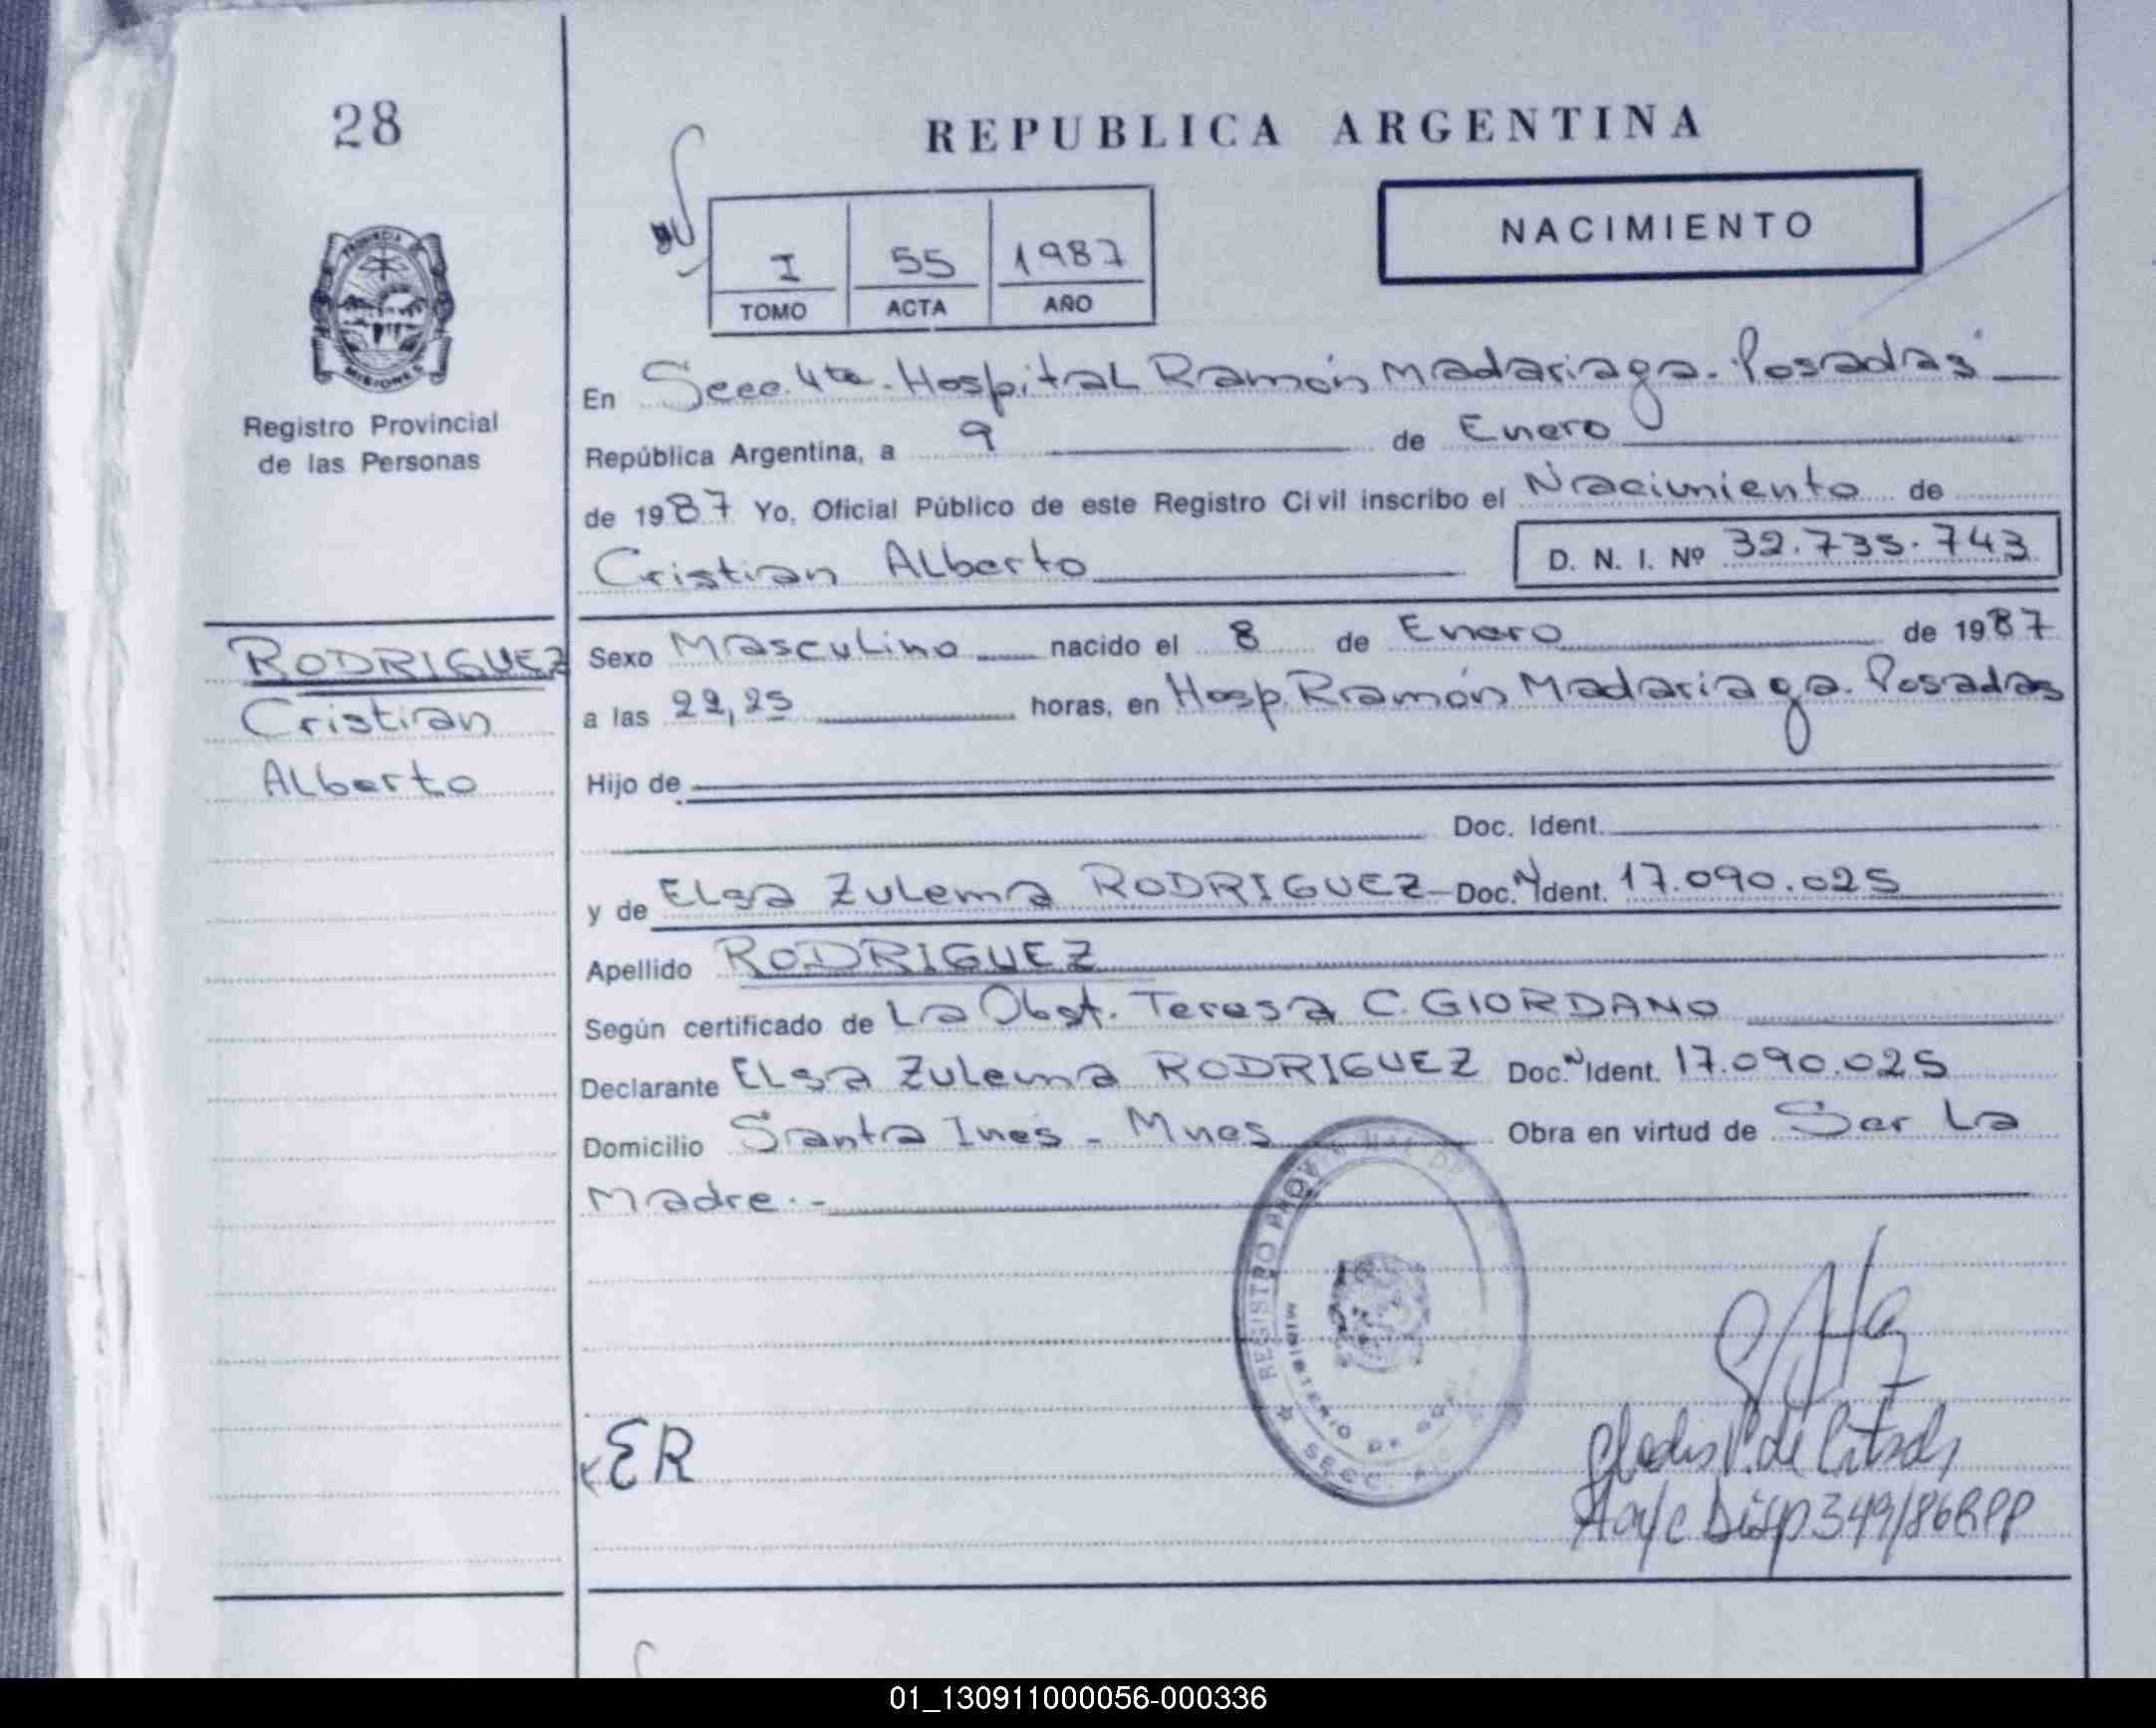 28
REPUBLICA ARGENTINA
NACIMIENTO
I 55 1987
TOMO ACTA AÑO
PROVINCIA
MISIONES
Registro Provincial
de las Personas
En Secc. 4ta. Hospital Ramón Madariaga. Posadas
República Argentina, a 9 de Enero
de 1987 Yo, Oficial Público de este Registro Civil inscribo el Nacimiento de
Cristian Alberto D. N. I. Nº 32.735.743
RODRIGUEZ
Cristian
Alberto
Sexo Masculino nacido el 8 de Enero de 1987
a las 22,25 horas, en Hosp. Ramón Madariaga. Posadas
Hijo de
Doc. Ident.
y de Elsa Zulema RODRIGUEZ Doc. N Ident. 17.090.025
Apellido RODRIGUEZ
Según certificado de La Obst. Teresa C. GIORDANO
Declarante Elsa Zulema RODRIGUEZ Doc. N Ident. 17.090.025
Domicilio Santa Ines - Mnes Obra en virtud de Ser La
Madre.-
REGISTRO PROV
MINISTERIO DE
SECC.
ER
V. de
A/c Disp 349/86 RPP
01_130911000056-000336